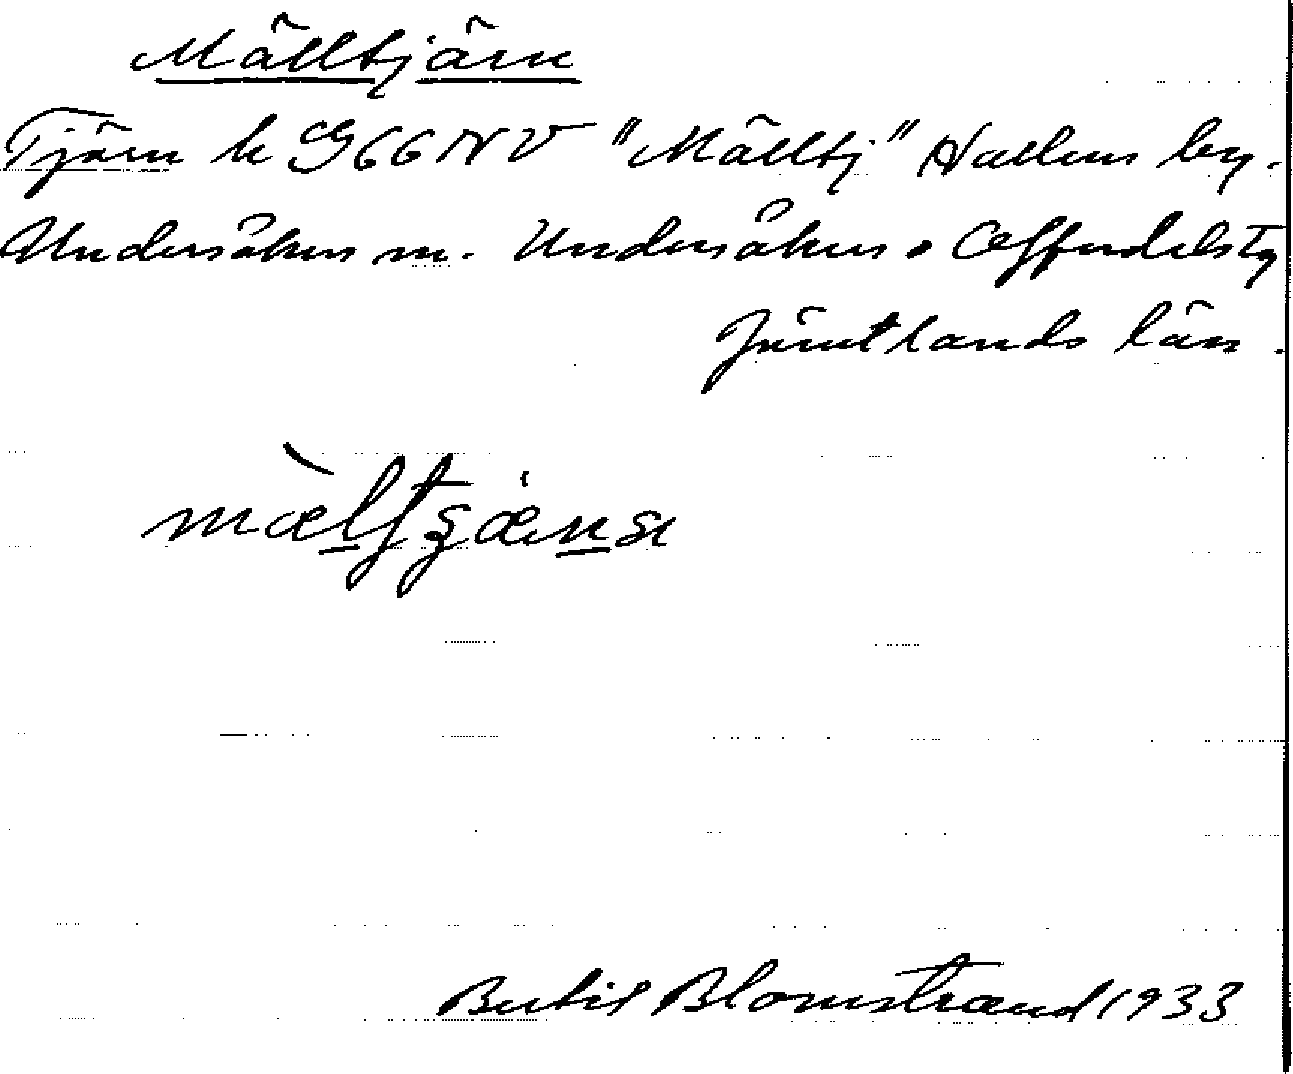 Mälltjärn
Tjärn k G66NV "Mälltj" Hallens by.
Undersåkers sn. Undersåkers o Offerdals tg
Jämtlands län.
Bertil Blomstrand 1933